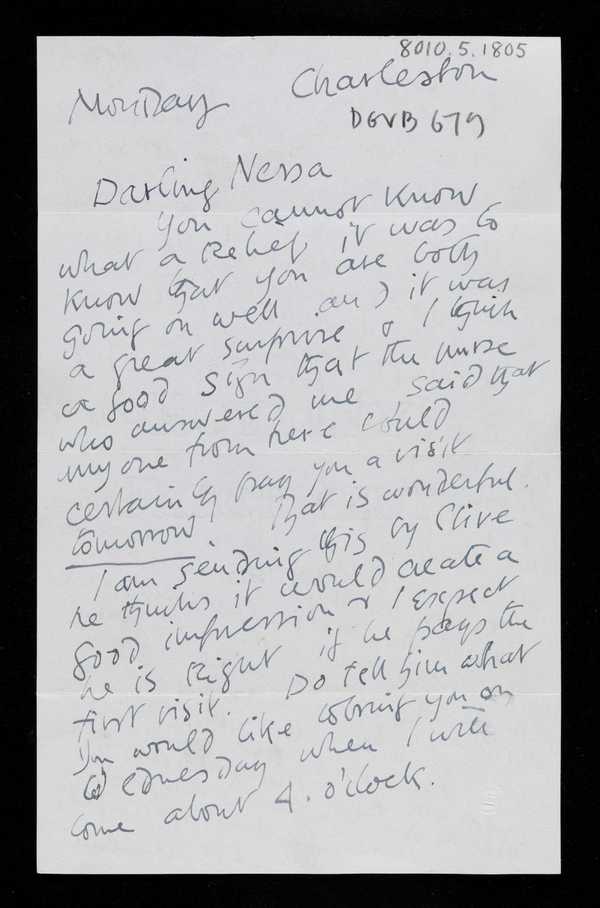 8010.5.1805
Monday Charleston
DGVB 679
Darling Nessa
You cannot know
what a relief it was to
know that you are both
going on well and it was
a great surprise & I think
a good sign that the nurse
who answered me said that
anyone from here could
certainly pay you a visit
tomorrow. That is wonderful.
I am sending this by Clive
he thinks it would create a
good impression & I expect
he is right if he pays the
first visit. Do tell him what
you would like to bring you on
Wednesday when I will
come about 4. o'clock.